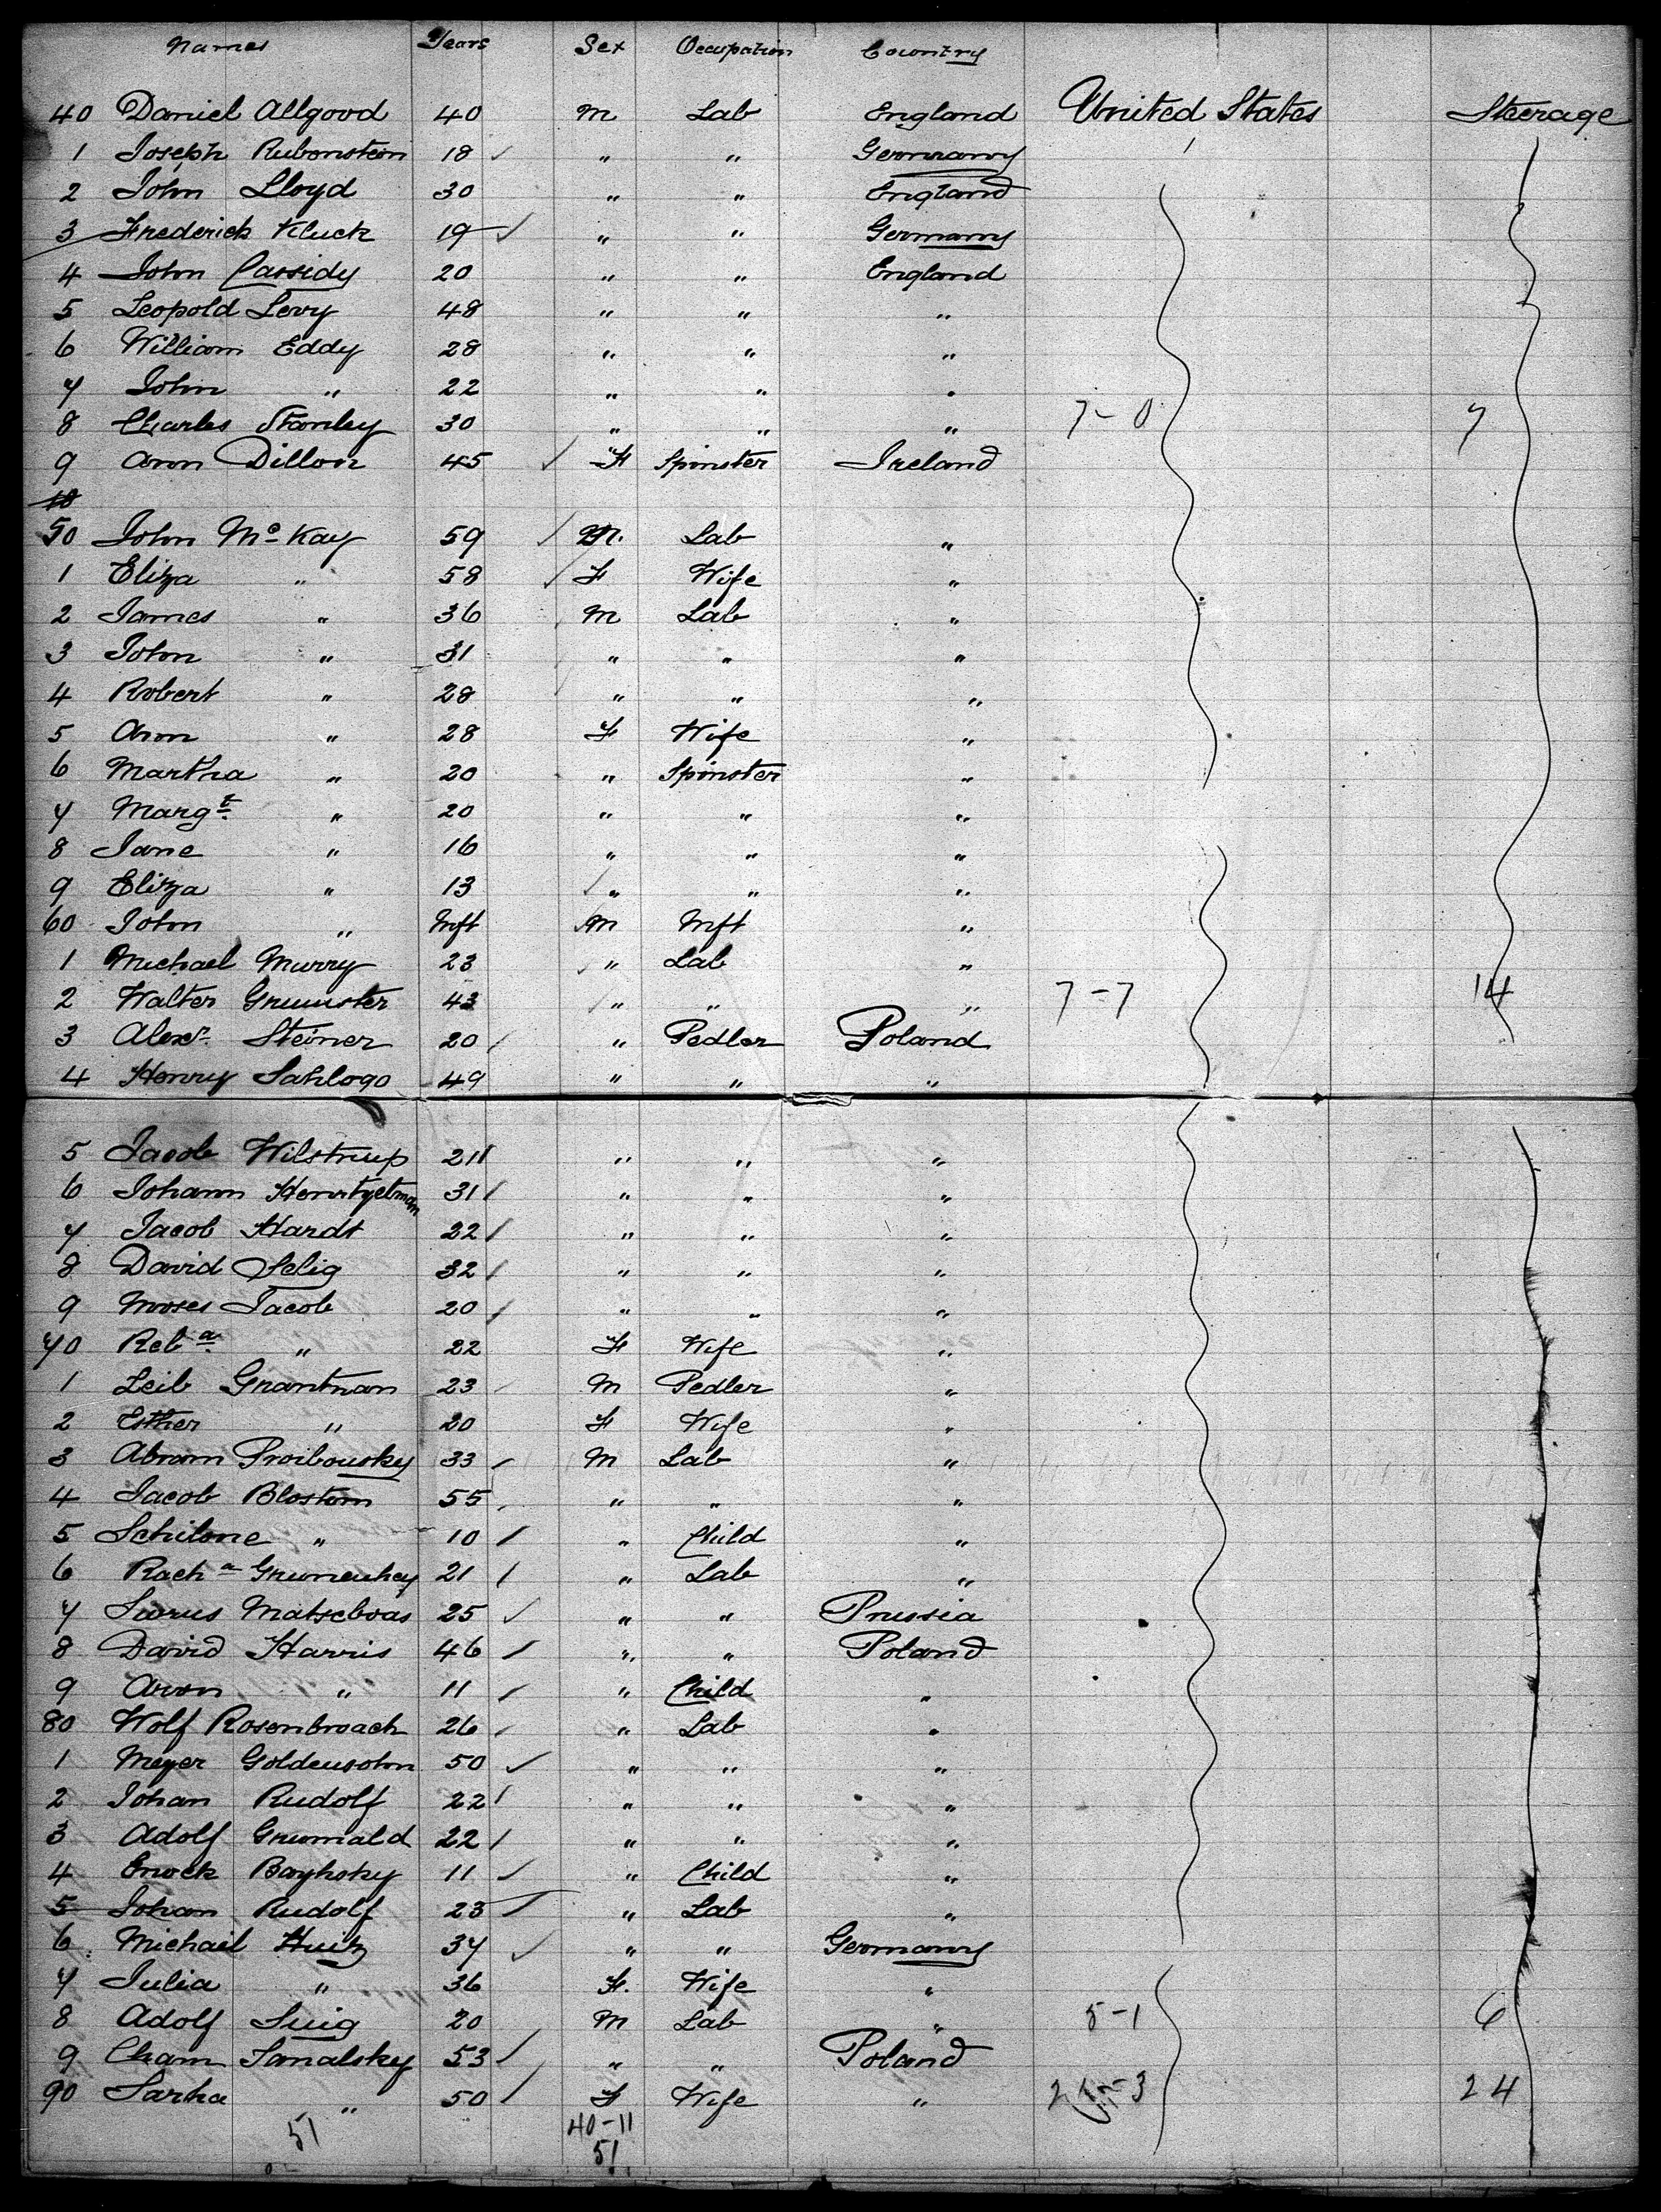 Names Years Sex Occupation Country
40 Daniel Allgood 40 M Lab England United States Steerage
1 Joseph Rubonstein 18 " " Germany
2 John Lloyd 30 " " England
3 Frederick Kluck 19 " " Germany
4 John Cassidy 20 " " England
5 Leopold Levy 48 " " "
6 William Eddy 28 " " "
7 John " 22 " " "
8 Charles Stanley 30 " " " 7-0 7
9 Ann Dillon 45 F Spinster Ireland
50 John McKay 59 M. Lab "
1 Eliza " 58 F Wife "
2 James " 36 M Lab "
3 John " 31 " " "
4 Robert " 28 " " "
5 Ann " 28 F Wife "
6 Martha " 20 " Spinster "
7 Margt. " 20 " " "
8 Jane " 16 " " "
9 Eliza " 13 " " "
60 John " Inft M Inft "
1 Michael Murry 23 " Lab "
2 Walter 43 " " " 7-7 14
3 Alexr. Steiner 20 " Pedler Poland
4 Henry Sahlogo 49 " " "
5 Jacob Wilstrup 21 " " "
6 Johann 31 " " "
7 Jacob Hardt 22 " " "
8 David Selig 32 " " "
9 Moses Jacob 20 " " "
70 Reba. " 22 F Wife "
1 Leib Grantman 23 M Pedler "
2 Esther " 20 F Wife "
3 Abram Proibousky 33 M Lab "
4 Jacob Blostom 55 " " "
5 Schilone " 10 " Child "
6 Racha 21 " Lab "
7 25 " " Prussia
8 David Harris 46 " " Poland
9 Aron " 11 " Child "
80 Wolf Rosenbroach 26 " Lab "
1 Meyer Goldensohn 50 " " "
2 Johan Rudolf 22 " " "
3 Adolf Grunwald 22 " " "
4 Enock Bayhoky 11 " Child "
5 Johan Rudolf 23 " Lab "
6 Michail Huitz 37 " " Germany
7 Julia " 36 F. Wife "
8 Adolf 20 M Lab " 5-1 6
9 Cham Samalsky 53 " " Poland
90 Sarha " 50 F Wife " 24
51 40-11
51